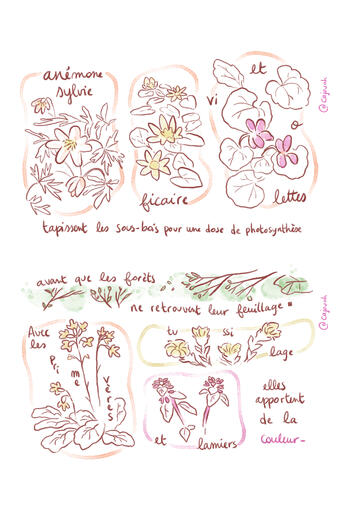 anémone
sylvie
ficaire
et
vi
o
lettes
@Capruch
tapissent les sous-bois pour une dose de photosynthèse
avant que les forêts
ne retrouvent leur feuillage.
@Capruch
Avec
les
pri
me
vères
tu ssi
lage
et lamiers
elles
apportent
de la
couleur-